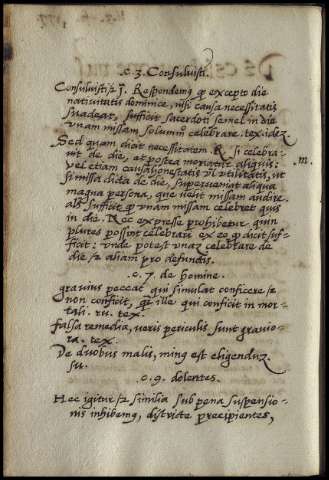 .c. 3. Consuluisti.
Consuluisti / 2 J. Respondemꝰ qɔ excepto die
natiuitatis dominice, nisi causa necessitatis
suadeat, sufficit sacerdoti semel in die
vnam missam solummō celebrare. tex. idez
Sed quam dicit necessitatem. R. si celebra-
uit de die, et postea moriatur aliquis:
vel etiam causa honestatis vl' vtilitatis, ut
si missa dicta de die, superueniat aliqua
magna persona, que uelit missam audire.
als' sufficit qɔ vnam missam celebret quis
in die. Nec expresse prohibetur quin
plures possint celebrari ex eo qɔ dicit suf-
ficit: vnde potest vnaz celebrare de
die / 2 aliam pro defunctis.
m.
.c. 7. de homine.
grauius peccat qui simulat conficere se
non conficit, qɔ ille qui conficit in mor-
tali. ru. tex.
falsa remedia, ueris periculis sunt grauio-
ra. tex.
De duobus malis, minꝰ est eligenduz.
su.
.c. 9. dolentes.
Hec igitur / 2 similia sub pena suspensio-
nis inhibemꝰ, districte precipientes,